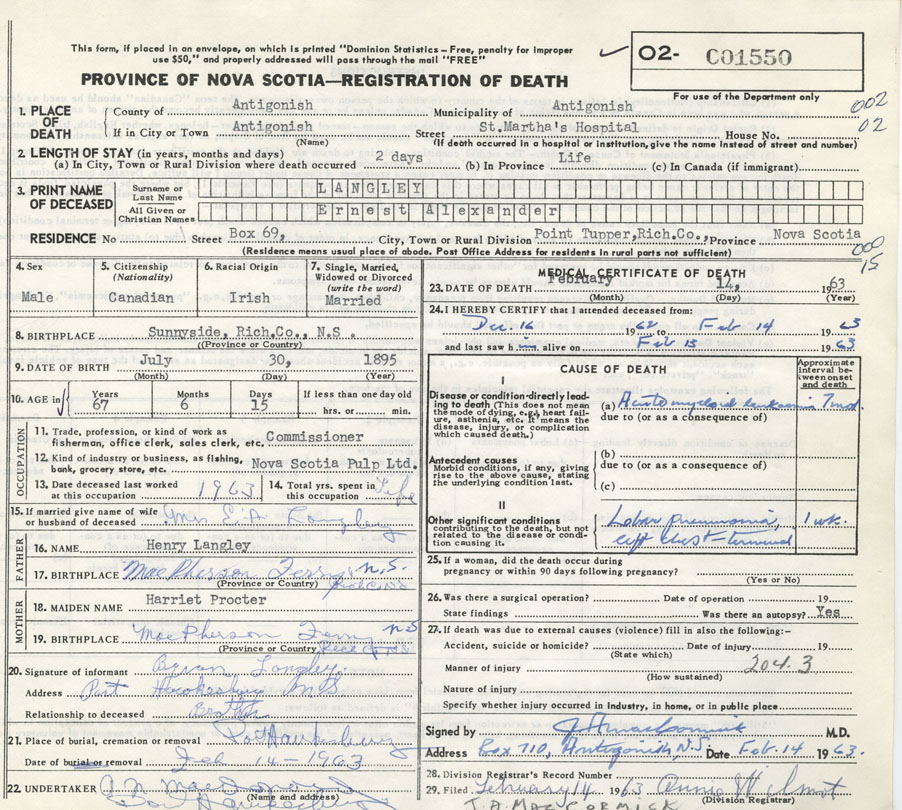 This form, if placed in an envelope, on which is printed "Dominion Statistics – Free, penalty for improper
use $50," and properly addressed will pass through the mail "FREE"
O2- C01550
PROVINCE OF NOVA SCOTIA—REGISTRATION OF DEATH
For use of the Department only
002
02
1. PLACE OF DEATH { County of Antigonish Municipality of Antigonish
If in City or Town Antigonish Street St.Martha's Hospital House No.
(Name) (If death occurred in a hospital or institution, give the name instead of street and number)
2. LENGTH OF STAY (in years, months and days)
(a) In City, Town or Rural Division where death occurred 2 days (b) In Province Life (c) In Canada (if immigrant)
3. PRINT NAME OF DECEASED { Surname or Last Name LANGLEY
All Given or Christian Names Ernest Alexander
RESIDENCE No Street Box 69, City, Town or Rural Division Point Tupper,Rich.Co., Province Nova Scotia
(Residence means usual place of abode. Post Office Address for residents in rural parts not sufficient)
000
15
4. Sex Male
5. Citizenship (Nationality) Canadian
6. Racial Origin Irish
7. Single, Married, Widowed or Divorced (write the word) Married
8. BIRTHPLACE Sunnyside, Rich.Co., N.S .
(Province or Country)
9. DATE OF BIRTH July 30, 1895
(Month) (Day) (Year)
10. AGE in Years 67 Months 6 Days 15 If less than one day old hrs. or min.
OCCUPATION
11. Trade, profession, or kind of work as fisherman, office clerk, sales clerk, etc. Commissioner
12. Kind of industry or business, as fishing, bank, grocery store, etc. Nova Scotia Pulp Ltd.
13. Date deceased last worked at this occupation 1963
14. Total yrs. spent in this occupation Life
15. If married give name of wife or husband of deceased Mrs E.A. Langley
FATHER
16. NAME Henry Langley
17. BIRTHPLACE MacPherson Ferry N.S.
(Province or Country) Rich Co NS
MOTHER
18. MAIDEN NAME Harriet Procter
19. BIRTHPLACE MacPherson Ferry NS
(Province or Country) Rich Co NS
20. Signature of informant Langley
Address Port Hawkesbury NS
Relationship to deceased Brother
21. Place of burial, cremation or removal Port Hawkesbury
Date of burial or removal Feb 14-1963
22. UNDERTAKER
(Name and address)
MEDICAL CERTIFICATE OF DEATH
23. DATE OF DEATH February 14, 1963
(Month) (Day) (Year)
24. I HEREBY CERTIFY that I attended deceased from:
Dec. 16 1962 to Feb 14 1963
and last saw him alive on Feb 13 1963
CAUSE OF DEATH
Approximate interval between onset and death
I
Disease or condition directly leading to death (This does not mean the mode of dying, e.g., heart failure, asthenia, etc. It means the disease, injury, or complication which caused death.)
(a) Acute myeloid leukaemia
due to (or as a consequence of)
Antecedent causes
Morbid conditions, if any, giving rise to the above cause, stating the underlying condition last.
(b)
due to (or as a consequence of)
(c)
II
Other significant conditions contributing to the death, but not related to the disease or condition causing it.
Lobar pneumonia, 1 wk.
left chest – terminal
25. If a woman, did the death occur during pregnancy or within 90 days following pregnancy?
(Yes or No)
26. Was there a surgical operation? Date of operation 19
State findings Was there an autopsy? Yes
27. If death was due to external causes (violence) fill in also the following:–
Accident, suicide or homicide? Date of injury 19
(State which)
Manner of injury 204.3
(How sustained)
Nature of injury
Specify whether injury occurred in industry, in home, or in public place
Signed by J A MacCormick M.D.
Address Box 710, Antigonish N.S. Date Feb. 14 1963.
28. Division Registrar's Record Number
29. Filed February 14 1963 Annie
(Division Registrar)
J.A. MACCORMICK